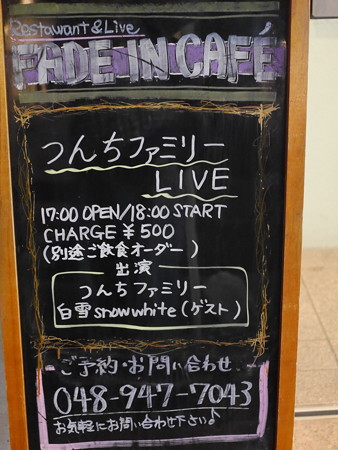 Restaurant & Live
FADE IN CAFÉ
つんちファミリー
LIVE
17:00 OPEN/18:00 START
CHARGE ¥500
(別途ご飲食オーダー)
出演
つんちファミリー
白雪snowwhite(ゲスト)
ご予約・お問い合わせ
048-947-7043
お気軽にお問い合わせ下さい♪